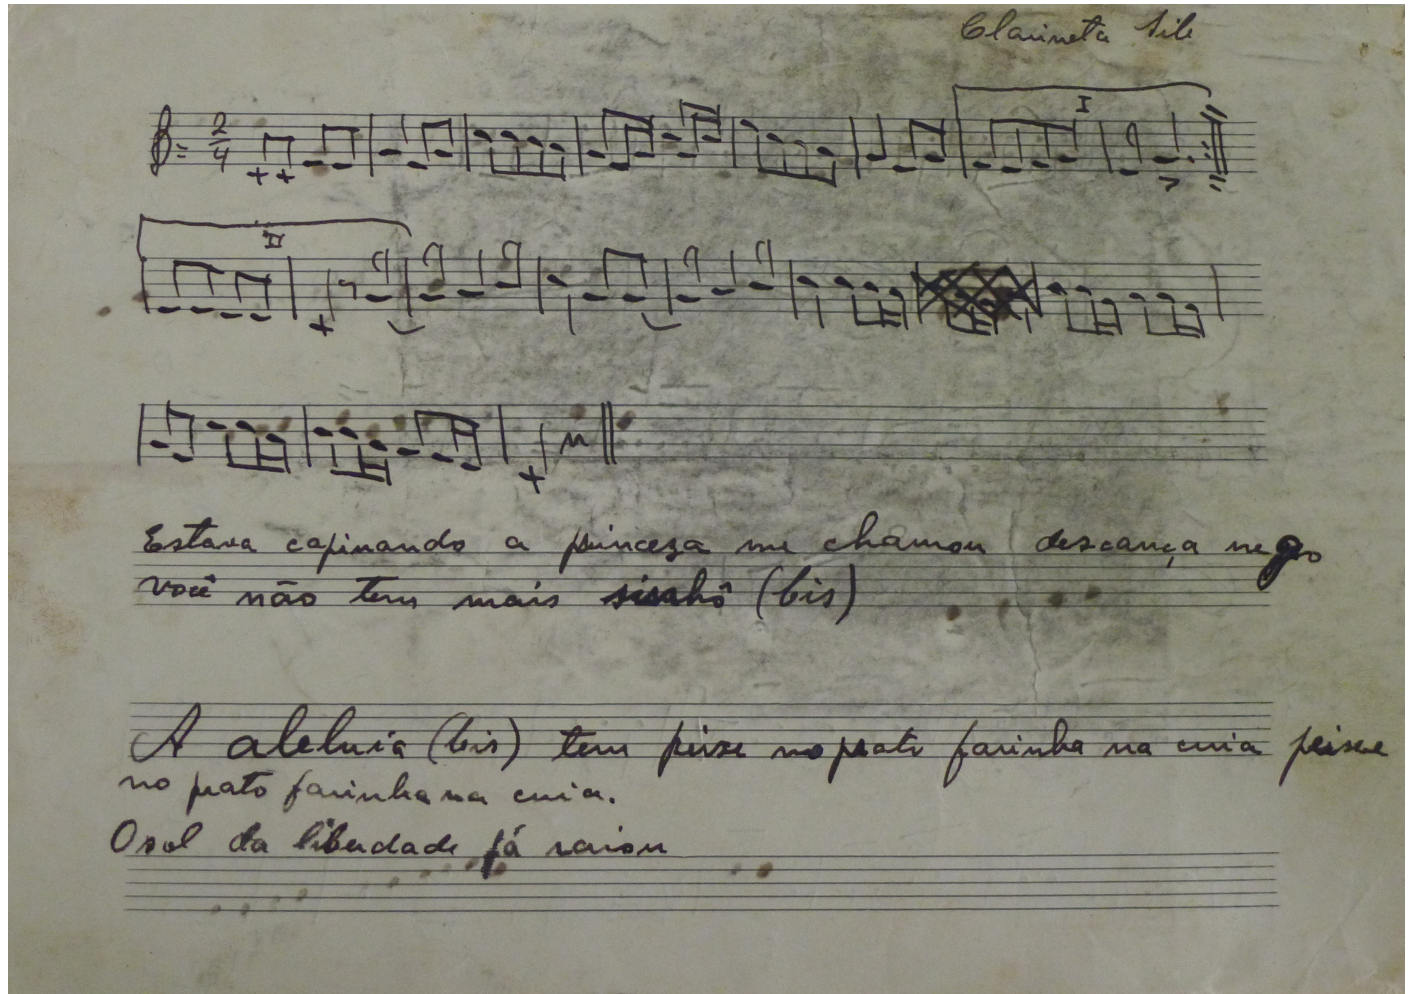 Clarineta Sib
2/4
I
II
Estava capinando a princeza me chamou descança nego
você não tem mais sinhô (bis)
A aleluia (bis) tem peixe no prato farinha na cuia peixe
no prato farinha na cuia.
O sol da liberdade já raiou